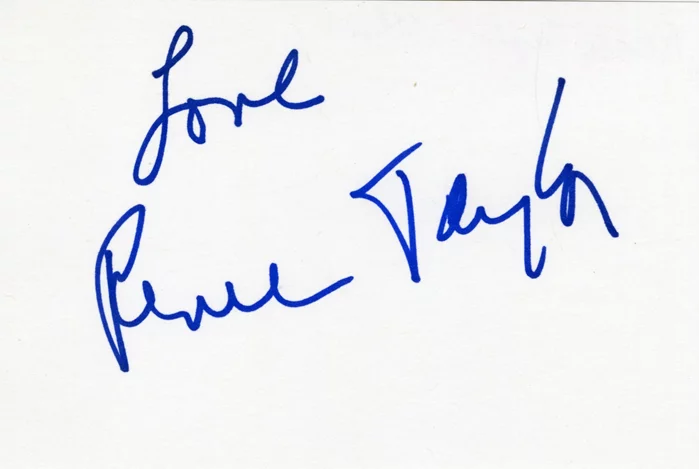 Love
Renee Taylor